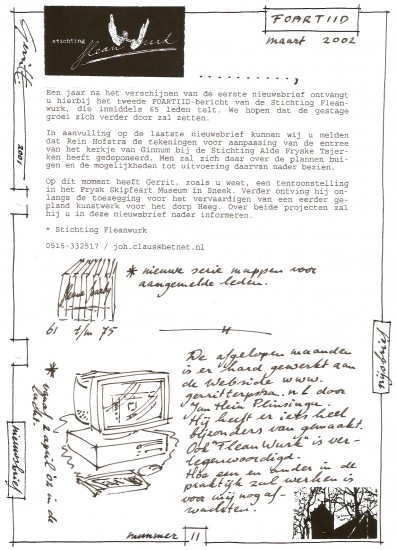 stichting
fleanwurk
FOARTIID
maart 2002
Gerrit
2002
Een jaar na het verschijnen van de eerste nieuwsbrief ontvangt
u hierbij het tweede FOARTIID-bericht van de Stichting Flean-
wurk, die inmiddels 65 leden telt. We hopen dat de gestage
groei zich verder door zal zetten.
In aanvulling op de laatste nieuwsbrief kunnen wij u melden
dat Rein Hofstra de tekeningen voor aanpassing van de entree
van het kerkje van Ginnum bij de Stichting Alde Fryske Tsjer-
ken heeft gedeponeerd. Men zal zich daar over de plannen bui-
gen en de mogelijkheden tot uitvoering daarvan nader bezien.
Op dit moment heeft Gerrit, zoals u weet, een tentoonstelling
in het Frysk Skipfeart Museum in Sneek. Verder ontving hij on-
langs de toezegging voor het vervaardigen van een eerder ge-
pland kunstwerk voor het dorp Heeg. Over beide projecten zal
hij u in deze nieuwsbrief nader informeren.
* Stichting Fleanwurk
0515-332517 / joh.claus@hetnet.nl
* nieuwe serie mappen voor
aangemelde leden.
61 t/m 75
De afgelopen maanden
is er hard gewerkt aan
de Webside www.
gerritterpstra.nl door
Jan Hein Plinsinga.
Hij heeft er iets heel
bijzonders van gemaakt.
Ook "FleanWurk" is ver-
tegenwoordigd.
Hoe een en ander in de
praktijk zal werken is
voor mij nog af-
wachten.
* vanaf 2 april '02 in de
lucht.
nijsbrief
nieuwsbrief
nummer 11